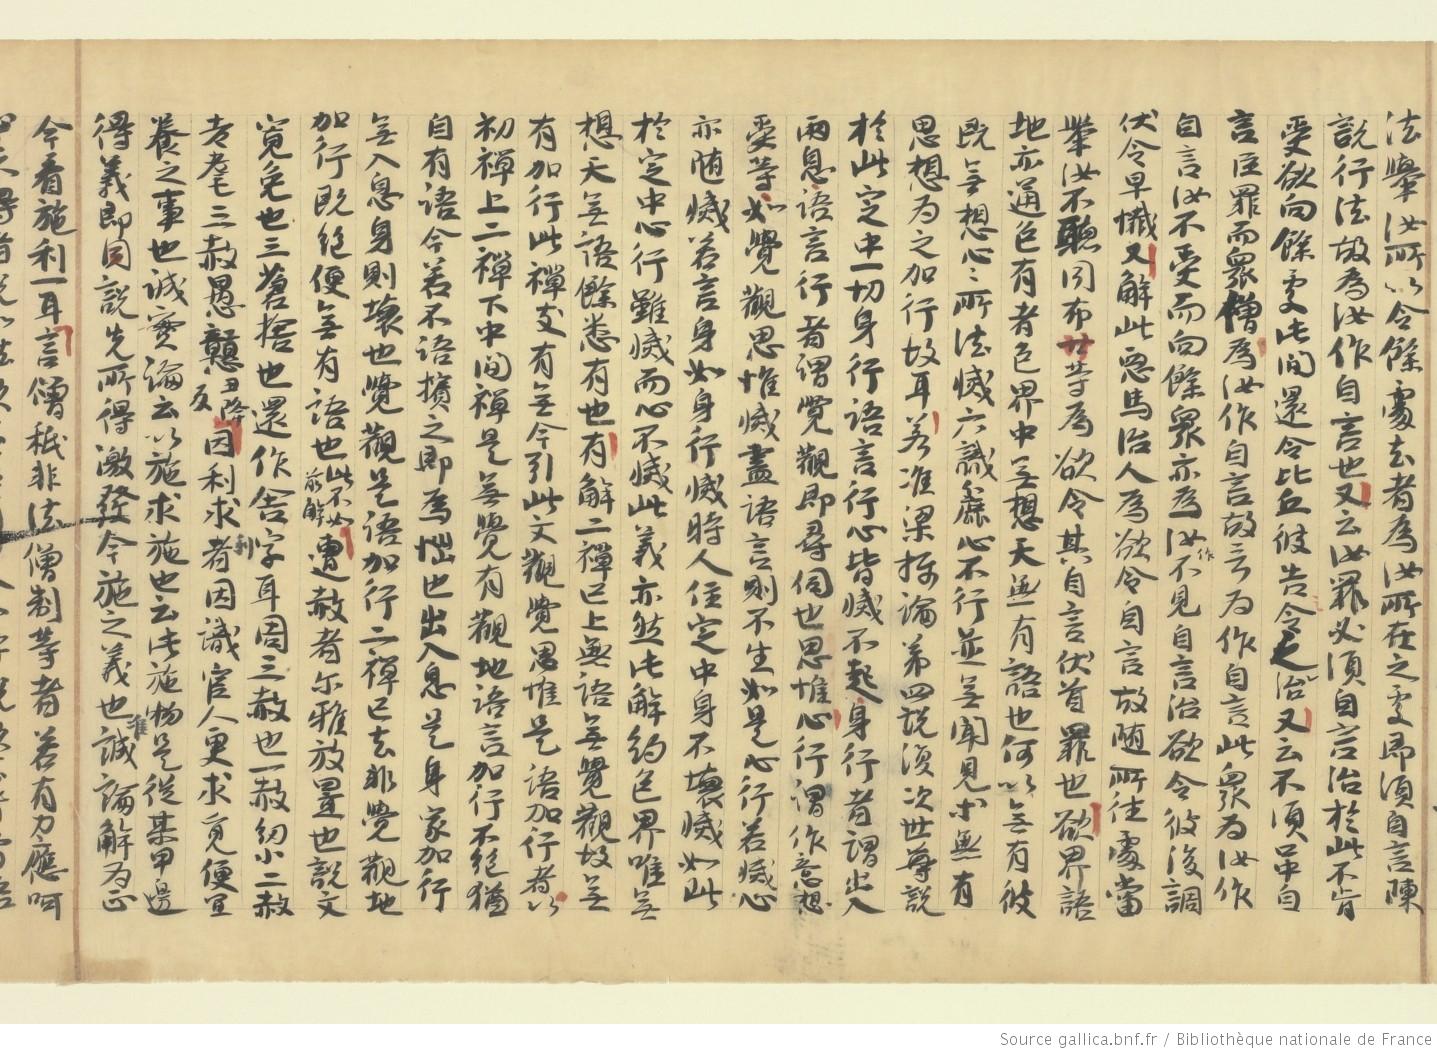 法舉汝所以令餘處去者為汝所在之處即須自言陳
說行法故為汝作自言也又云汝罪必須自言治於此不肯
受欲向餘處此間還令比丘彼告令乞治又云不須口中自
言臣罪而眾僧為汝作自言故言为作自言此眾为汝作
自言汝不受而向餘眾亦為汝作不見自言治欲令彼後調
伏令早懺又解此惡馬治人為欲令自言故随所住處當
舉汝不聽同布等為欲令其自言伏首罪也欲界語
地亦通色有者色界中無想天無有語也何以無有彼
既無想心心所法滅六識麁心不行並無聞見亦無有
思想为之加行故耳若准梁攝論第四說復次世尊說
於此定中一切身行語言行心皆滅不起身行者謂出入
兩息語言行者謂覺觀即尋伺也思惟心行謂作意想
受等如覺觀思惟滅盡語言則不生如是心行若滅心
亦随滅若言身如身行滅時人住定中身不壞滅如此
於定中心行雖滅而心不滅此義亦然此解約色界唯無
想天無語餘悉有也有解二禪已上無語無覺觀故無
有加行此禪支有無今引此文觀覺思惟是語加行者以
初禪上二禪下中間禪是無覺有觀地語言加行不絕猶
自有語今若不語擯之即為惱也出入息是身家加行
無入息身則壞也覺觀是語加行二禪已去非覺觀地
加行既絕便無有語也此不如前解遭赦者尔雅放置也說文
寬免也三蒼捨也還作舍字耳周三赦也一赦幼小二赦
老耄三赦愚戇丑降反因利求利者因識官人更求覓便宜
養之事也誠實論云以施求施也云此施物是從某甲邊
得義即同說先所得激發令施之義也准誠論解为正
今看施利一耳言僧秖非法僧制等者若有力應呵